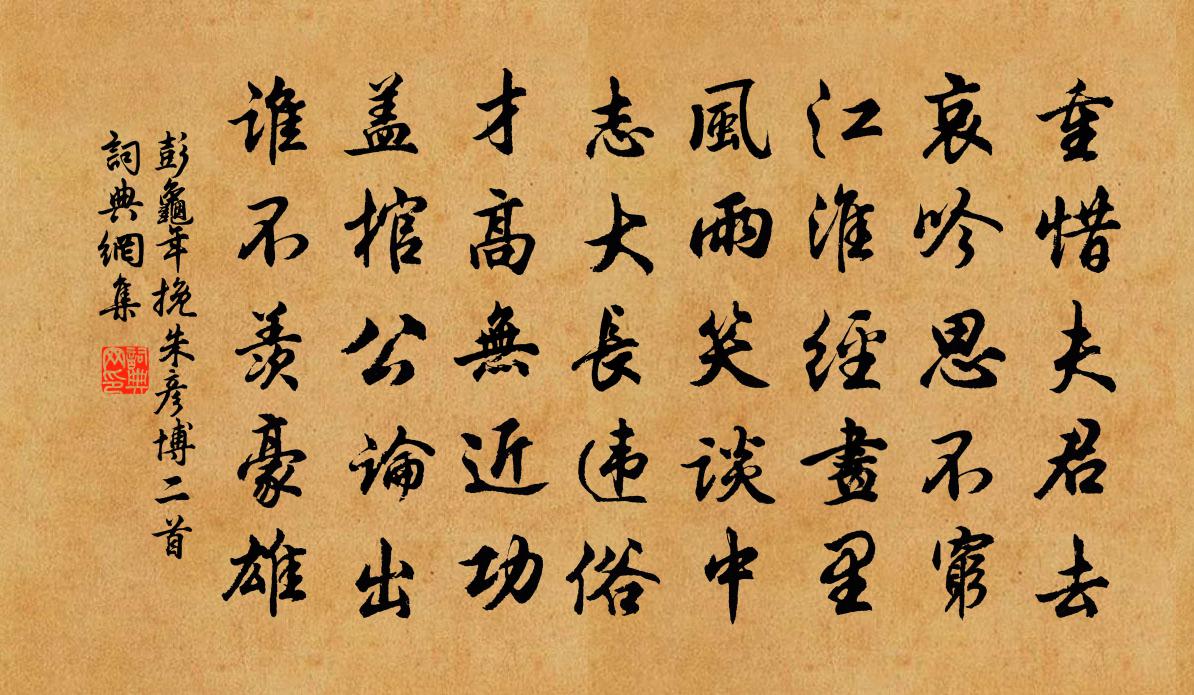 重惜夫君去
哀吟思不窮
江淮經畫里
風雨笑談中
志大長违俗
才高無近功
盖棺公論出
誰不羨豪雄
彭龜年挽朱彦博二首
詞典網集